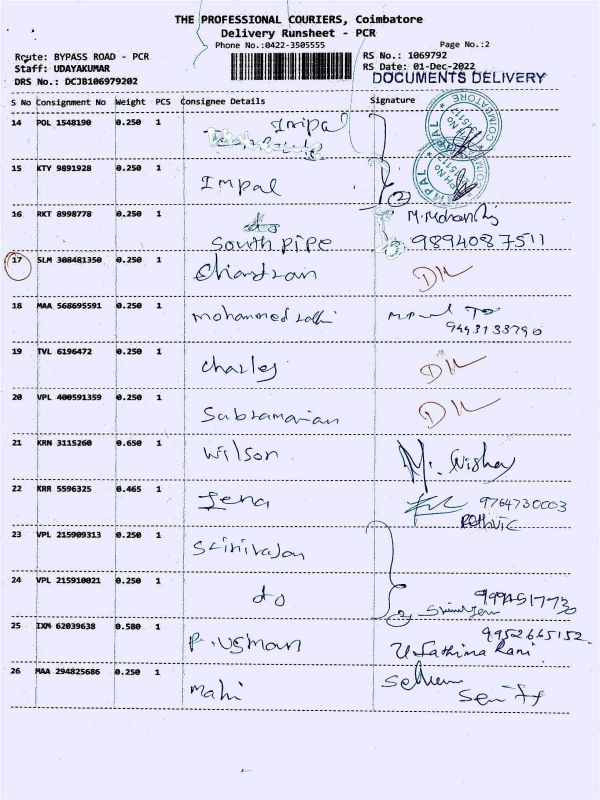 THE PROFESSIONAL COURIERS, Coimbatore
Delivery Runsheet - PCR
Phone No.:0422-3505555 Page No.:2
Route: BYPASS ROAD - PCR RS No.: 1069792
Staff: UDAYAKUMAR RS Date: 01-Dec-2022
DRS No.: DCJB106979202 DOCUMENTS DELIVERY
S No Consignment No Weight PCS Consignee Details Signature
14 POL 1548190 0.250 1 Impal
15 KTY 9891928 0.250 1 Impal 2
16 RKT 8998778 0.250 1 do M.Mohan
South pipe 9894087511
17 SLM 308481350 0.250 1 Chandran DL
18 MAA 568695591 0.250 1 Mohammed
19 TVL 6196472 0.250 1 Charley DL
20 VPL 400591359 0.250 1 Subramanian DL
21 KRN 3115260 0.650 1 Wilson
22 KRR 5596325 0.465 1 Jena 9764730003
23 VPL 215909313 0.250 1 Srinivasan
24 VPL 215910021 0.250 1 do 2
25 IXM 62039638 0.580 1 P. Usman 9952665152
U.Fathima Rani
26 MAA 294825686 0.250 1 Mahi
COIMBATORE
IMPAL